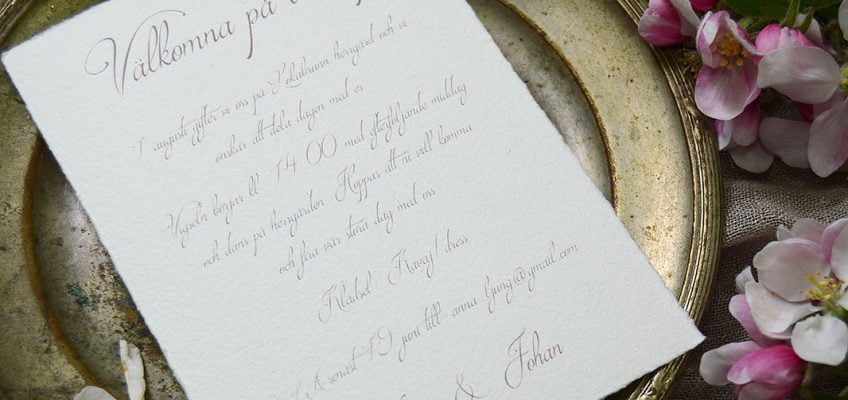 Välkomna på
I augusti gifter vi oss på Sokabrunn herrgård och vi
önskar att dela dagen med er
Vigseln börjar kl 14 00 med efterföljande middag
och dans på herrgården Hoppas att ni vill komma
och fira vår stora dag med oss
Klädsel Kavajt dress
A senast 19 juni till anna ljung@gmail com
& Johan